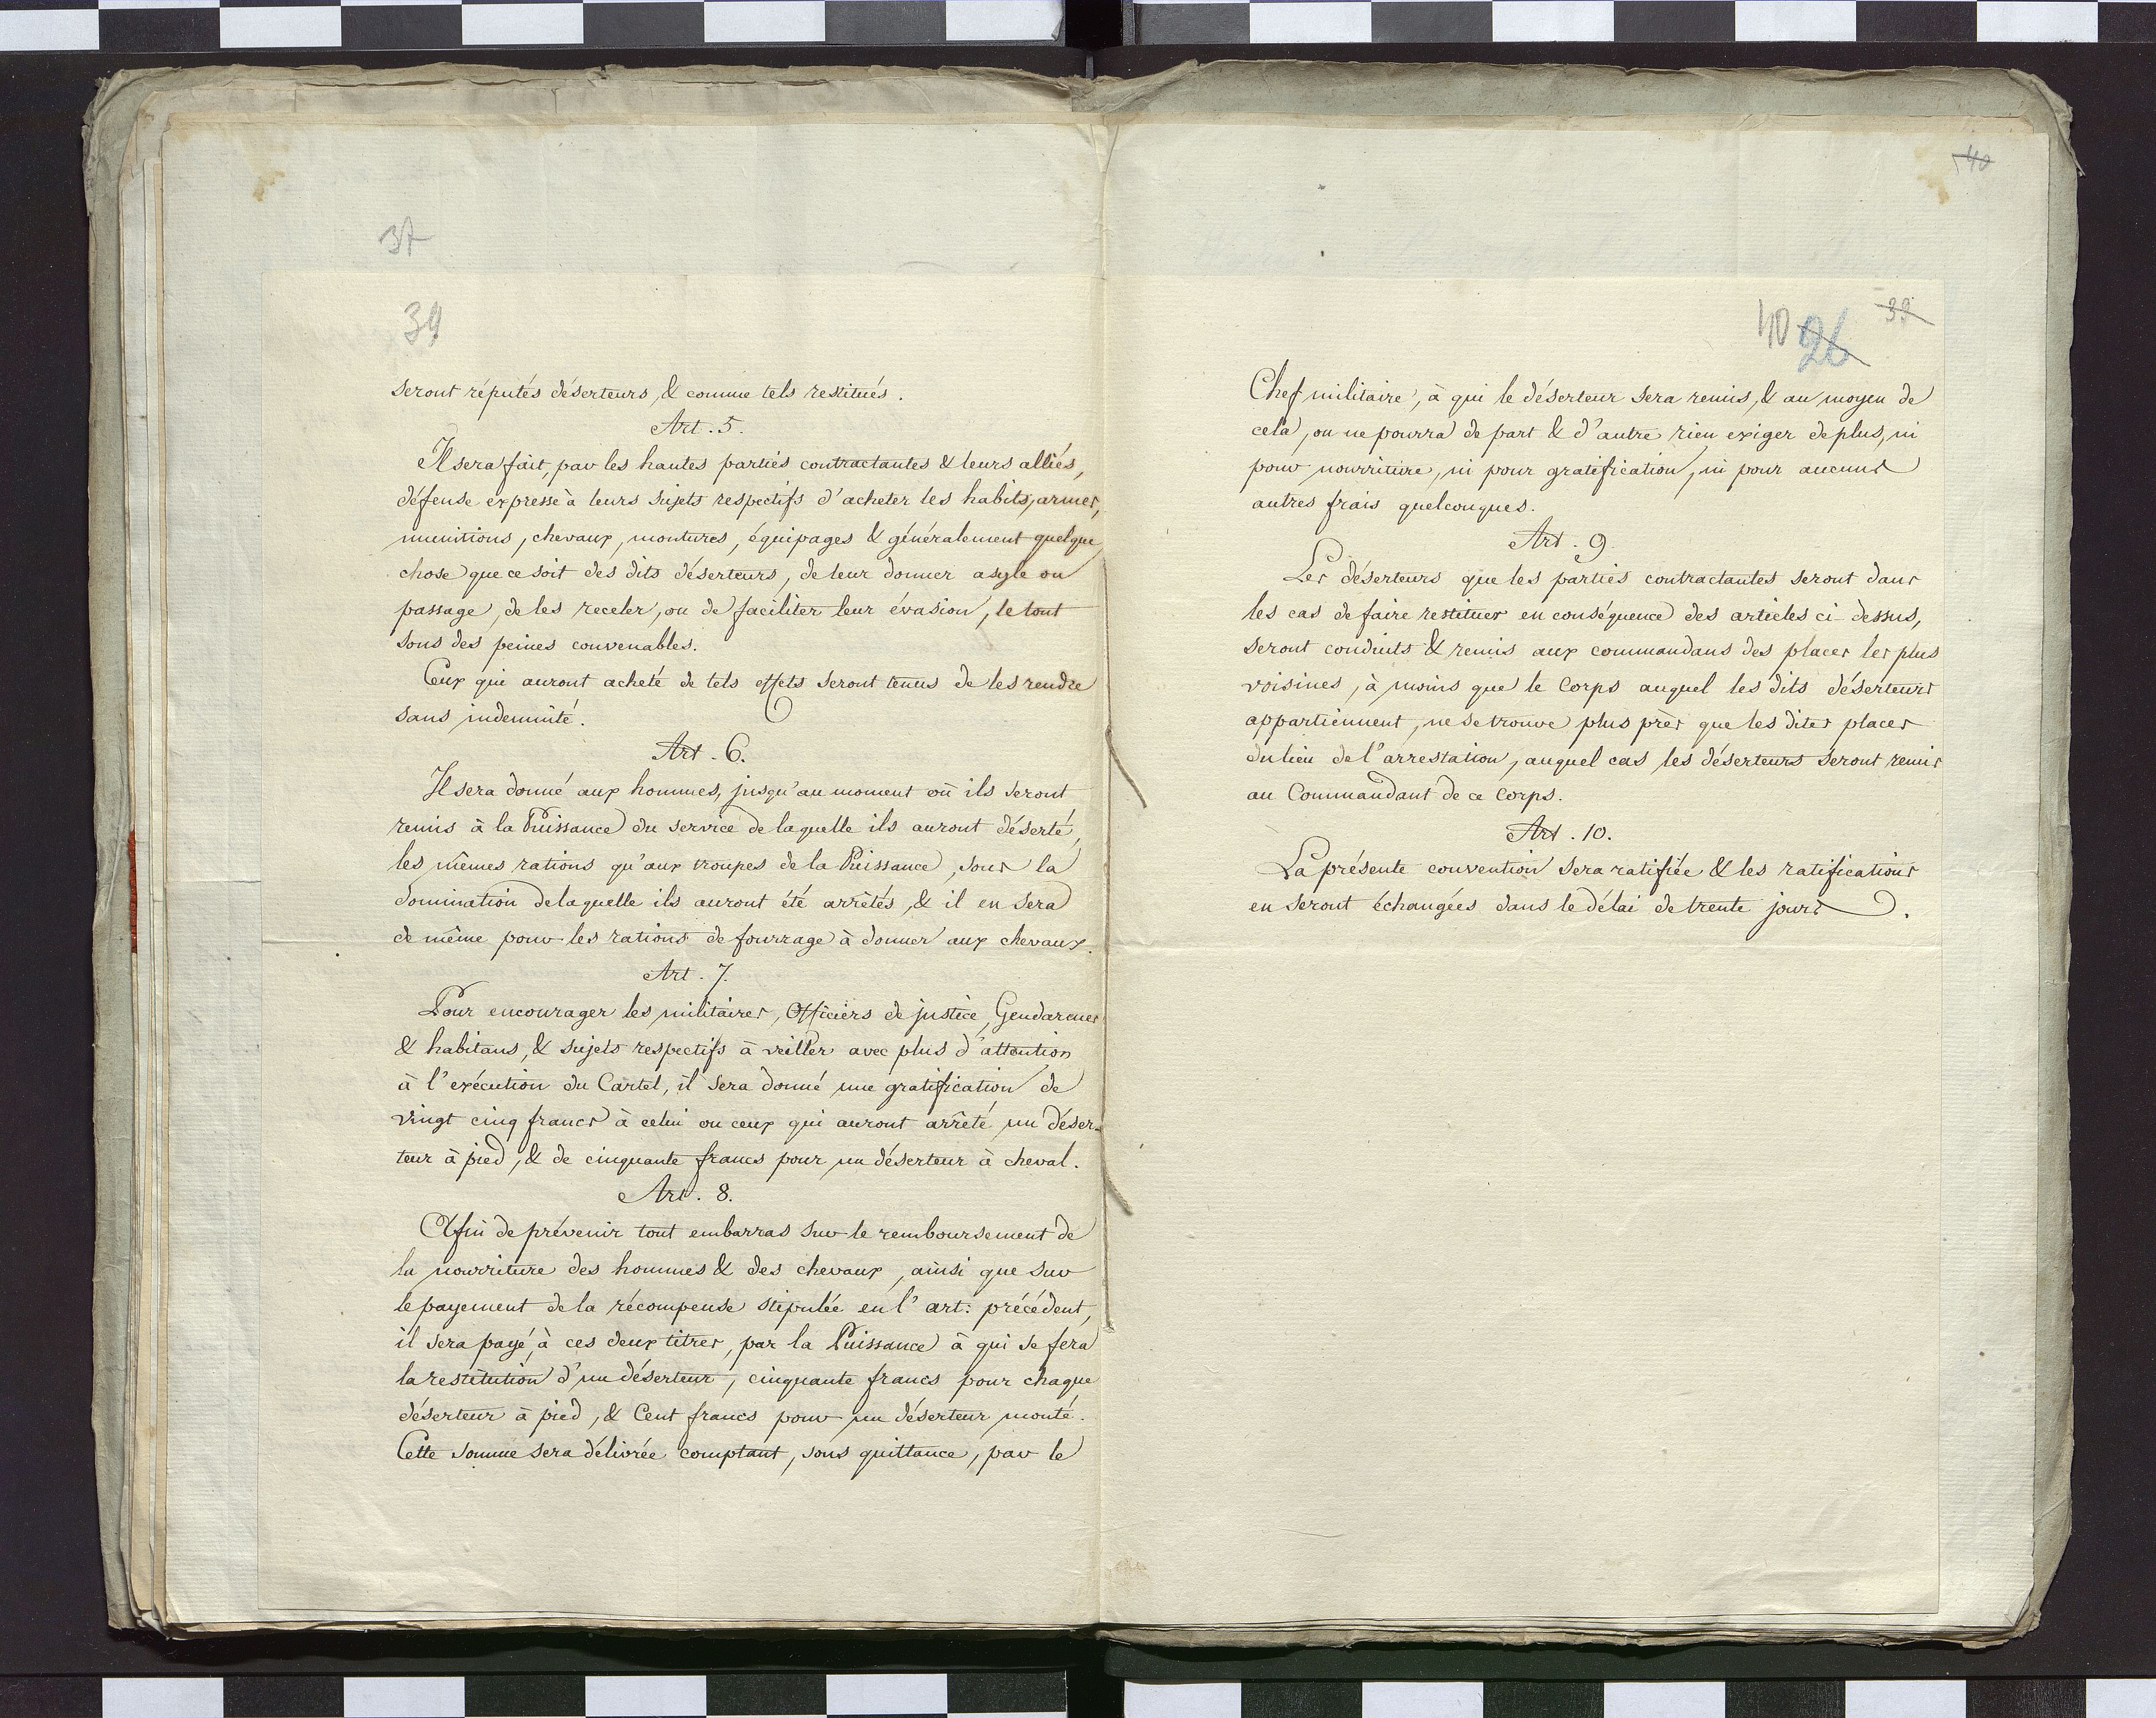 37
39
seront réputés déserteurs, & comme tels restitués.
Art. 5.
Il sera fait, par les hautes parties contractantes & leurs alliés,
défense expresse à leurs sujets respectifs d'acheter les habits, armes,
munitions, chevaux, montures, équipages & généralement quelque
chose que ce soit des dits déserteurs, de leur donner asyle ou
passage, de les receler, ou de faciliter leur évasion, le tout
sous des peines convenables.
Ceux qui auront acheté de tels effets seront tenus de les rendre
sans indemnité.
Art. 6.
Il sera donné aux hommes, jusqu'au moment où ils seront
remis à la Puissance du service de laquelle ils auront déserté,
les mêmes rations qu'aux troupes de la Puissance, sous la
domination de laquelle ils auront été arrêtés, & il en sera
de même pour les rations de fourrage à donner aux chevaux.
Art. 7.
Pour encourager les militaires, Officiers de justice, Gendarmes
& habitans, & sujets respectifs à veiller avec plus d'attention
à l'exécution du Cartel, il sera donné une gratification de
vingt cinq francs à celui ou ceux qui auront arrêté un déser-
teur à pied, & de cinquante francs pour un déserteur à cheval.
Art. 8.
Afin de prévenir tout embarras sur le remboursement de
la nourriture des hommes & des chevaux, ainsi que sur
le payement de la récompense stipulée en l'art: précédent,
il sera payé, à ces deux titres, par la Puissance à qui se fera
la restitution d'un déserteur, cinquante francs pour chaque
déserteur à pied, & Cent francs pour un déserteur monté.
Cette somme sera délivrée comptant, sous quittance, par le
40
39
40 26
Chef militaire, à qui le déserteur sera remis, & au moyen de
cela, on ne pourra de part & d'autre rien exiger de plus, ni
pour nourriture, ni pour gratification, ni pour aucuns
autres frais quelconques.
Art. 9.
Les déserteurs que les parties contractantes seront dans
les cas de faire restituer en conséquence des articles ci-dessus,
seront conduits & remis aux commandans des places les plus
voisines, à moins que le Corps auquel les dits déserteurs
appartiennent, ne se trouve plus près que les dites places
du lieu de l'arrestation, auquel cas les déserteurs seront remis
au Commandant de ce Corps.
Art. 10.
La présente convention sera ratifiée & les ratifications
en seront échangées dans le délai de trente jours.